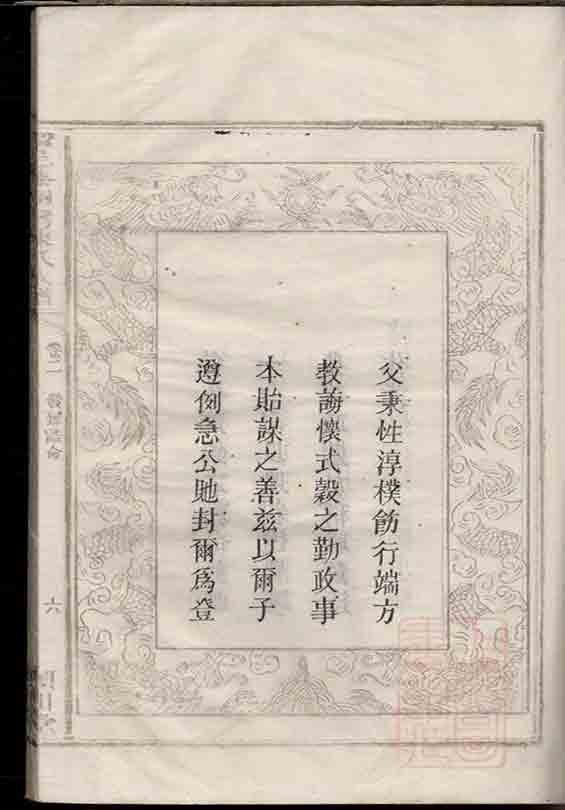 父秉性淳樸飭行端方
教誨懷式穀之勤政事
本貽謀之善兹以爾子
遵例急公貤封爾爲登
卷二
六